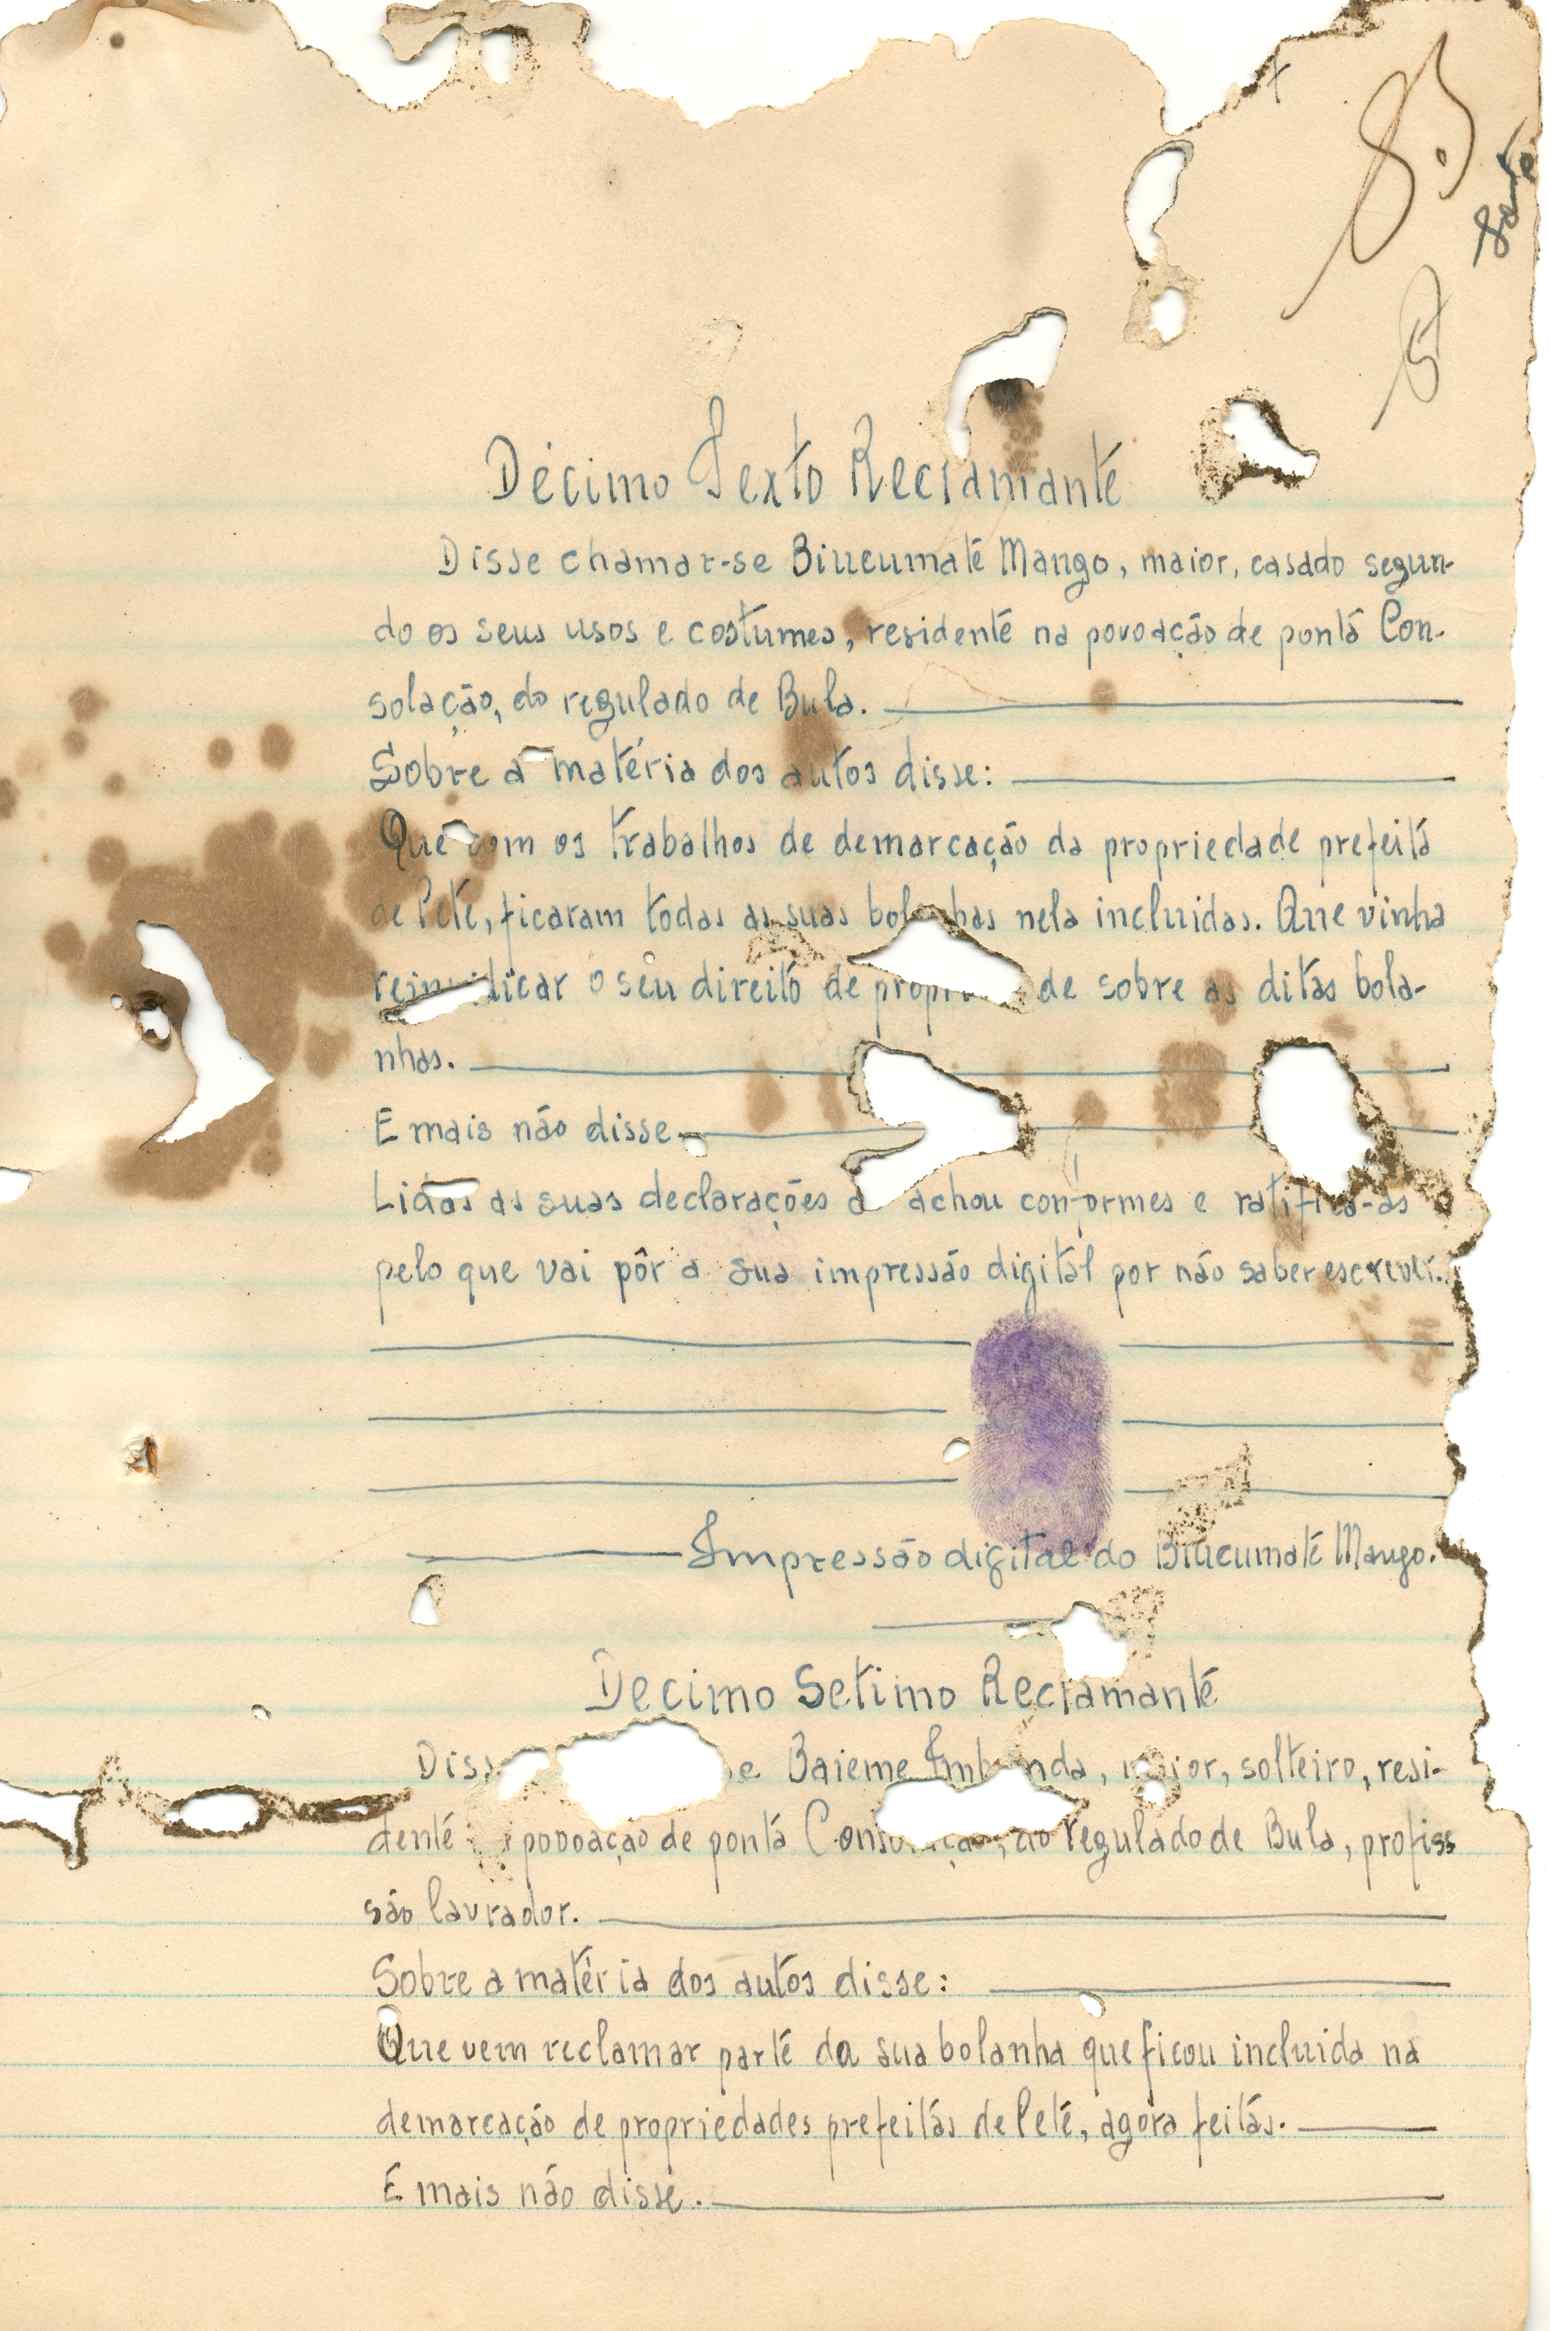 Décimo Sexto Reclamante
Disse chamar-se Biucumaté Mango, maior, casado segun-
do os seus usos e costumes, residente na povoação de ponta Con-
solação, do regulado de Bula.
Sobre a matéria dos autos disse:
Que com os trabalhos de demarcação da propriedade prefeita
de Peté, ficaram todas as suas bolanhas nela incluidas. Que vinha
o seu direito de sobre as ditas bola-
nhas.
E mais não disse
Lidas as suas declarações achou conformes e ratifica-as
pelo que vai pôr a sua impressão digital por não saber escrever.
Impressão digital do Biucumaté Mango.
Decimo Setimo Reclamante
Baieme maior, solteiro, resi-
dente povoação de ponta do regulado de Bula, profiss
são lavrador.
Sobre a matéria dos autos disse:
Que vem reclamar parte da sua bolanha que ficou incluida na
demarcação de propriedades prefeitas de Peté, agora feitas.
E mais não disse.